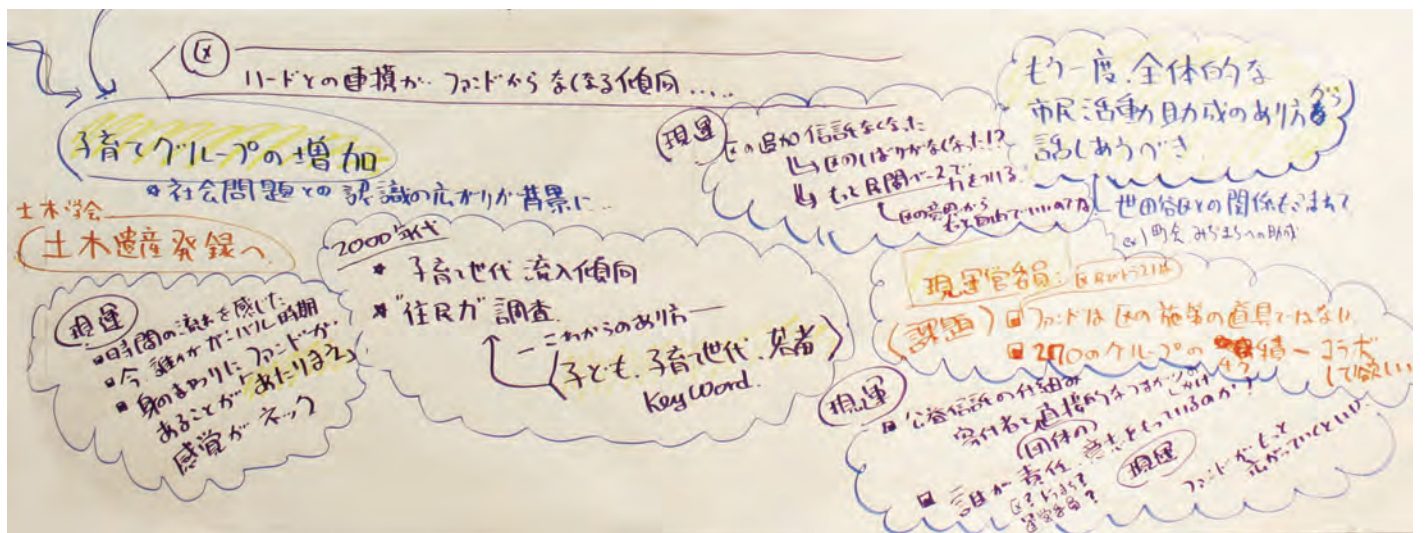 区
ハードとの連携が ファンドから なくなる傾向.....
子育てグループの増加
社会問題との認識の広がりが背景に...
土木学会
土木遺産発録へ
現運
時間の流れを感じた
今、誰かがガンバル時期
身のまわりに、ファンドが
あることが「あたりまえ」
感覚がネック
2000年代
子育て世代 流入傾向
"住民力"調査
これからのあり方
子ども、子育て世代、若者
Key Word.
現運
区の追加信託なくなった
区のしばりがなくなった!?
もっと民間ベースで
力をつける
区の意向から
もっと自由でいいのでは
もう一度、全体的な
市民活動助成のあり方から
話しあうべき
世田谷区との関係もふまえて
ex) 町会、みぢまちへの助成
現運営委員:
(課題) ファンドは区の施策の道具ではない
270のグループの 績 コラボ
して欲しい
現運
公益信託の仕組み
寄付者と直接的なつながり
団体の
誰が責任、意志をもっているのか?
区?トラまち?
運営委員?
現運
ファンドがもっと
広がっていくといい